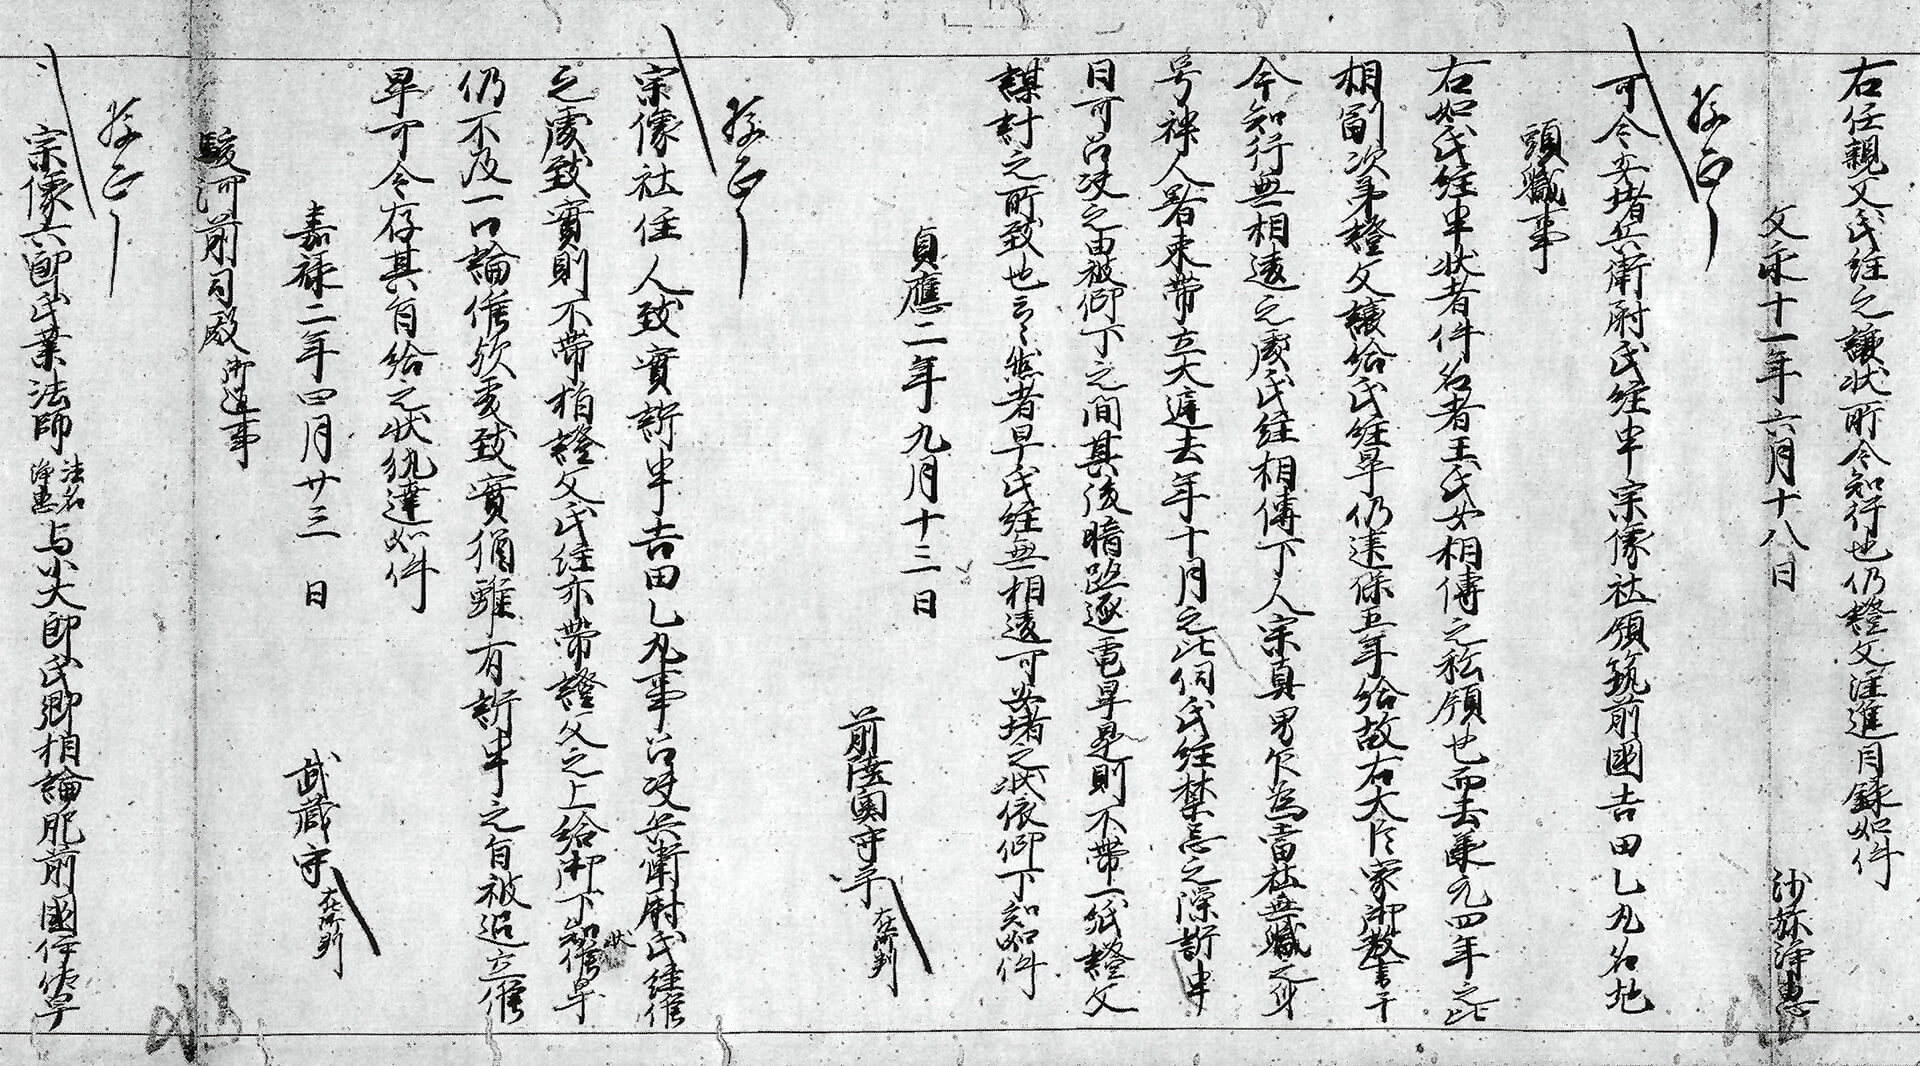 右任親父氏経之譲状所令知行也仍證文注進目録如件
文永十一年六月十八日
沙弥浄恵
可令安堵兵衛尉氏経申宗像社領筑前國吉田乙丸名地
頭職事
右如氏経申状者件名者王氏女相傳之私領也而去承元四年之比
相副次第證文譲給氏経畢仍建保五年給故右大臣家御教書于
今知行無相違之處氏経相傳下人宗真男欠為當社無職之身
号神人署束帯立大逗去年十月之比伺氏経禁忌之隙訴申
日可召决之由被仰下之間其後暗跡逐電畢是則不帯一紙證文
謀計之所致也云々然者早氏経無相違可安堵之状依仰下知如件
貞應二年九月十三日
前陸奥守平 在御判
宗像社住人致實訴申吉田乙丸事召决兵衛尉氏経候
之處致實則不帯相證文氏経亦帯證文之上給御下知状候畢
仍不及一口論候歟爰致實猶雖有訴申之旨被追立候
早可令存其旨給之状執達如件
嘉禄二年四月廿三日
武蔵守 在御判
駿河前司殿 御返事
宗像六郎氏業法師 法名浄恵 与小大郎氏郷相論肥前國伊佐早